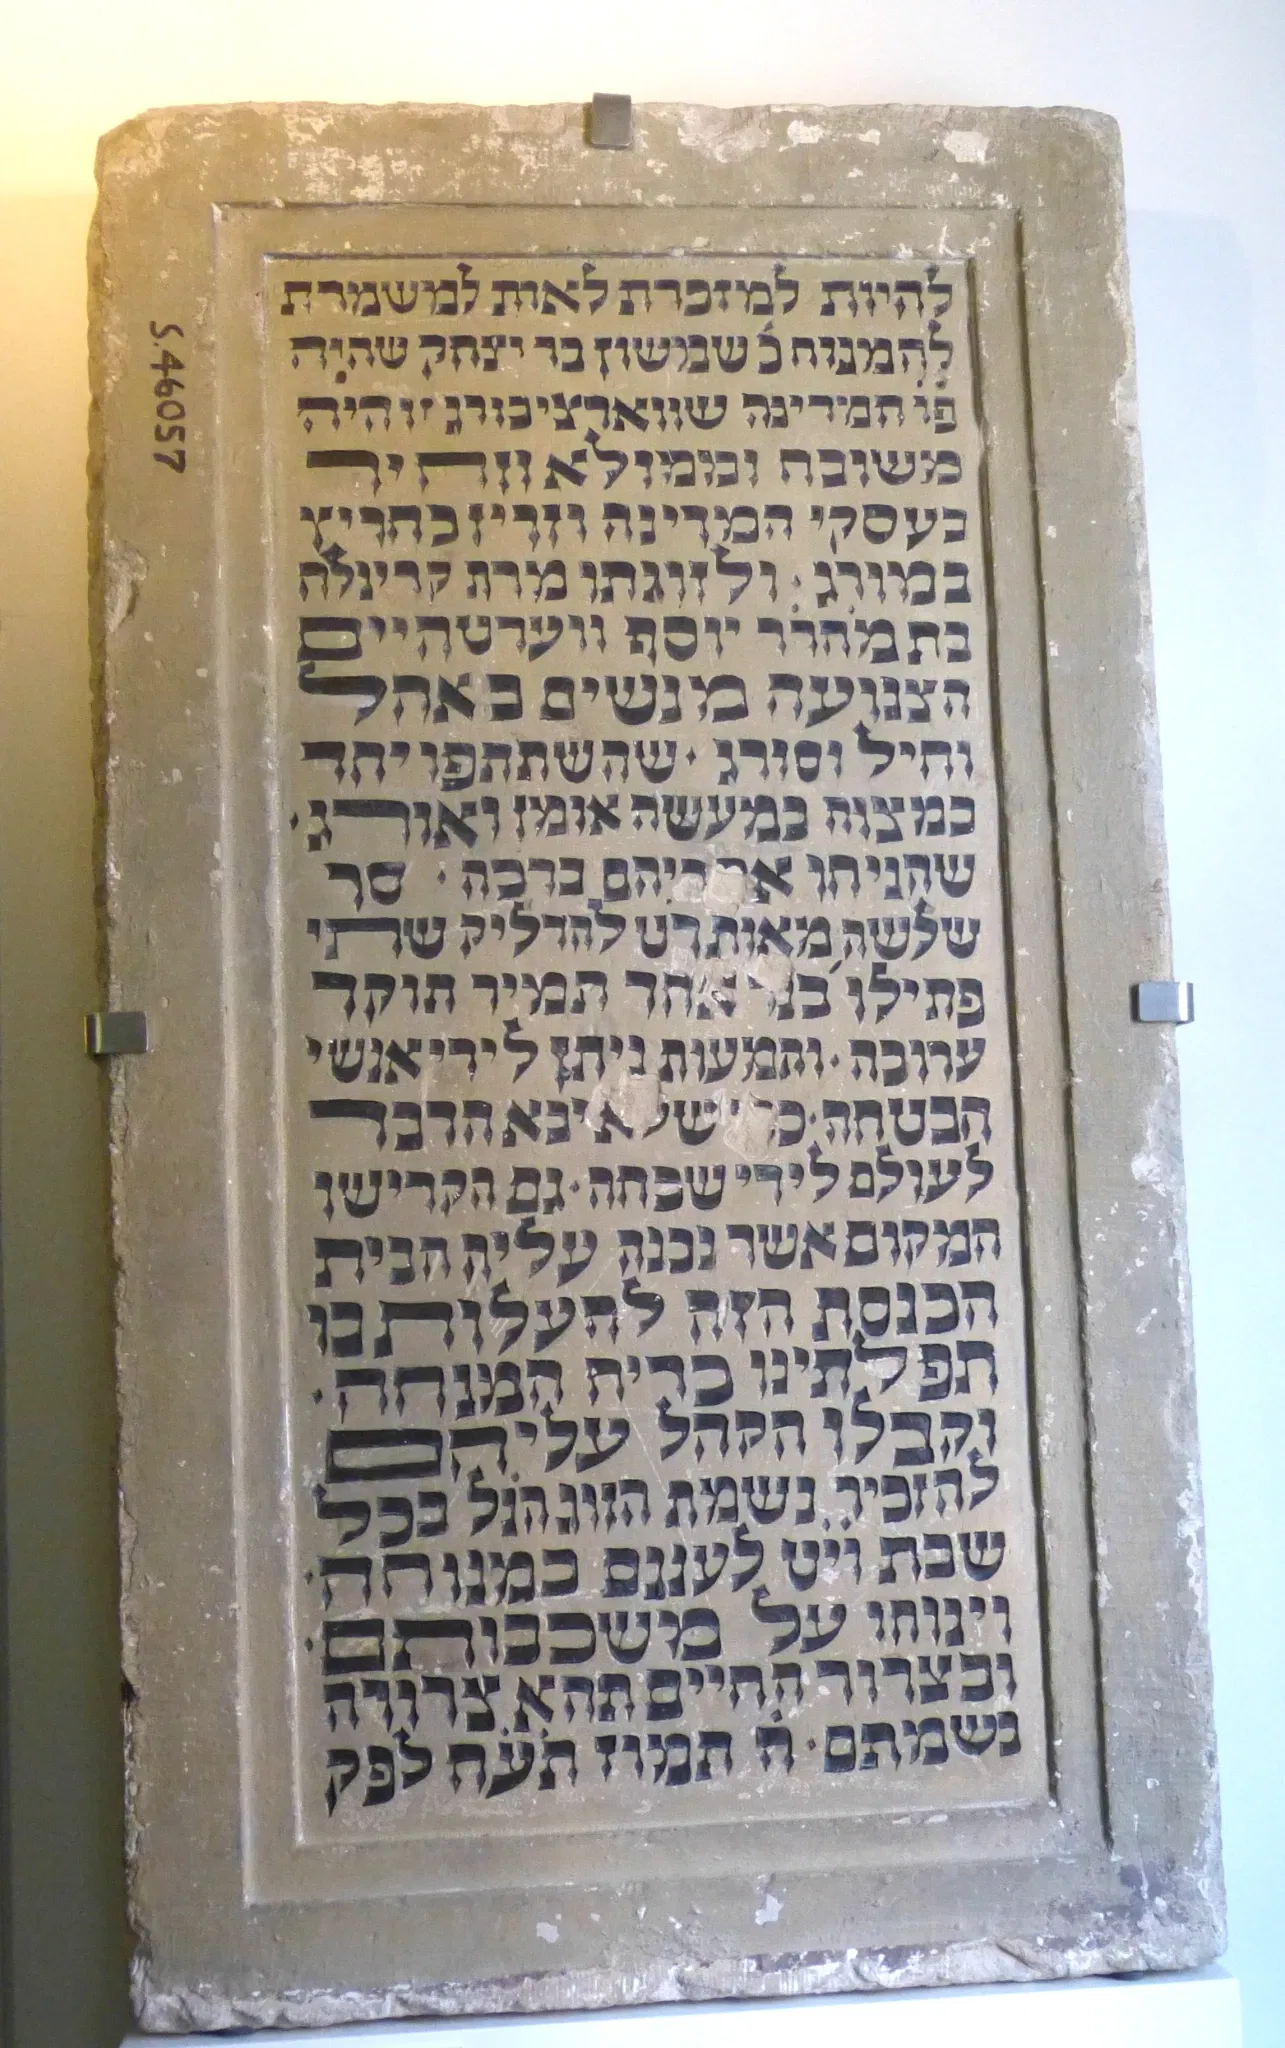 להיות למזכרת לאות למשמרת
להמנוח כ' שמשון בר יצחק שהיה
פו המדינה שווארציבורג והיה
משובח ומומולא וזהיר
בעסקי המדינה וזריז כחריץ
במורג · ולזוגתו מרת קרינלה
בת מהורר יוסף ווערטהיים
הצנועה מנשים באהל
וחיל וסורג · שהשתתפו יחד
במצוה במעשה אומן ואורג ·
שהניחו ברכה · סך
שלשה מאות רט להדליק שתי
פתילו' בנר אחד תמיד תוקד
ערוכה · והמעות ניתן לידי אנשי
הבטחה · שלא יבא הדבר
לעולם לידי שכחה · גם הקדישו
המקום אשר נבנה עליה הבית
הכנסת הזה להעלות בו
תפלתינו כריח המנחה ·
וקבלו הקהל עליהם
להזכיר נשמת הזוג הנ"ל בכל
שבת וי"ט לעננם במנוחה ·
וינוחו על משכבותם ·
ובצרור החיים תהא צרורה
נשמתם · ה' תמוז תע"ח לפק
S.46057